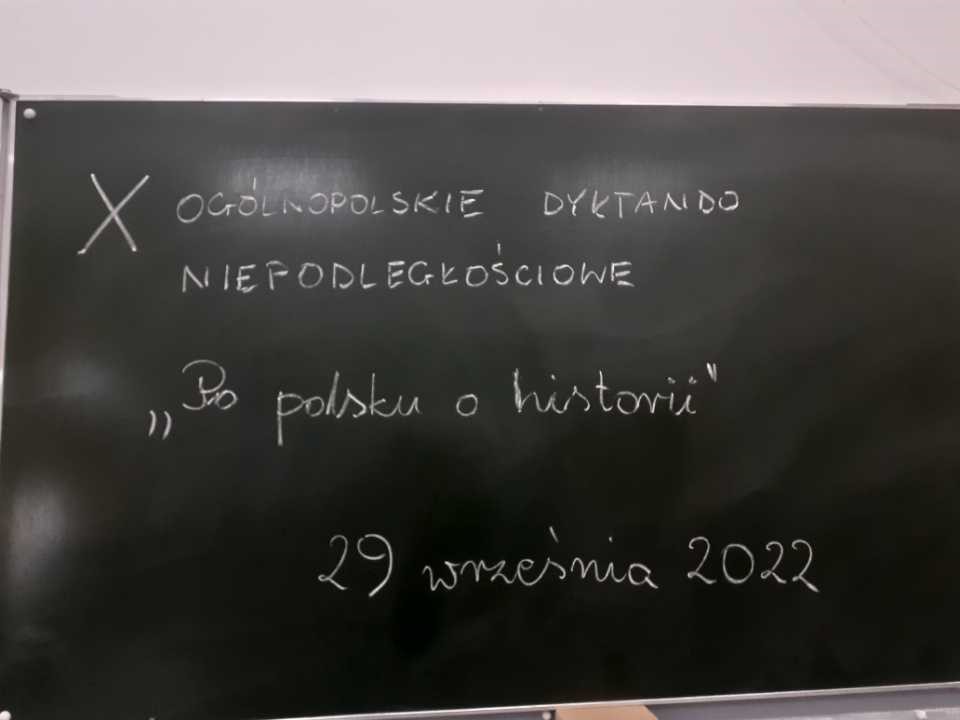 X OGÓLNOPOLSKIE DYKTANDO
NIEPODLEGŁOŚCIOWE
„Po polsku o historii"
29 września 2022